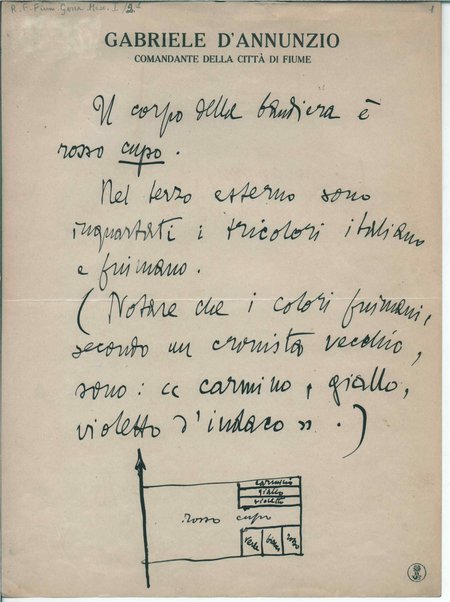 R. F. Fium. Gov.
GABRIELE D'ANNUNZIO
COMANDANTE DELLA CITTÀ DI FIUME
Il corpo della bandiera è
rosso cupo.
Nel terzo esterno sono
inquartati i tricolori italiano
e fiumano.
(Notare che i colori fiumani,
secondo un cronista vecchio,
sono: « carmino, giallo,
violetto d'indaco ». )
carminio
giallo
violetto
rosso cupo
verde bianco rosso